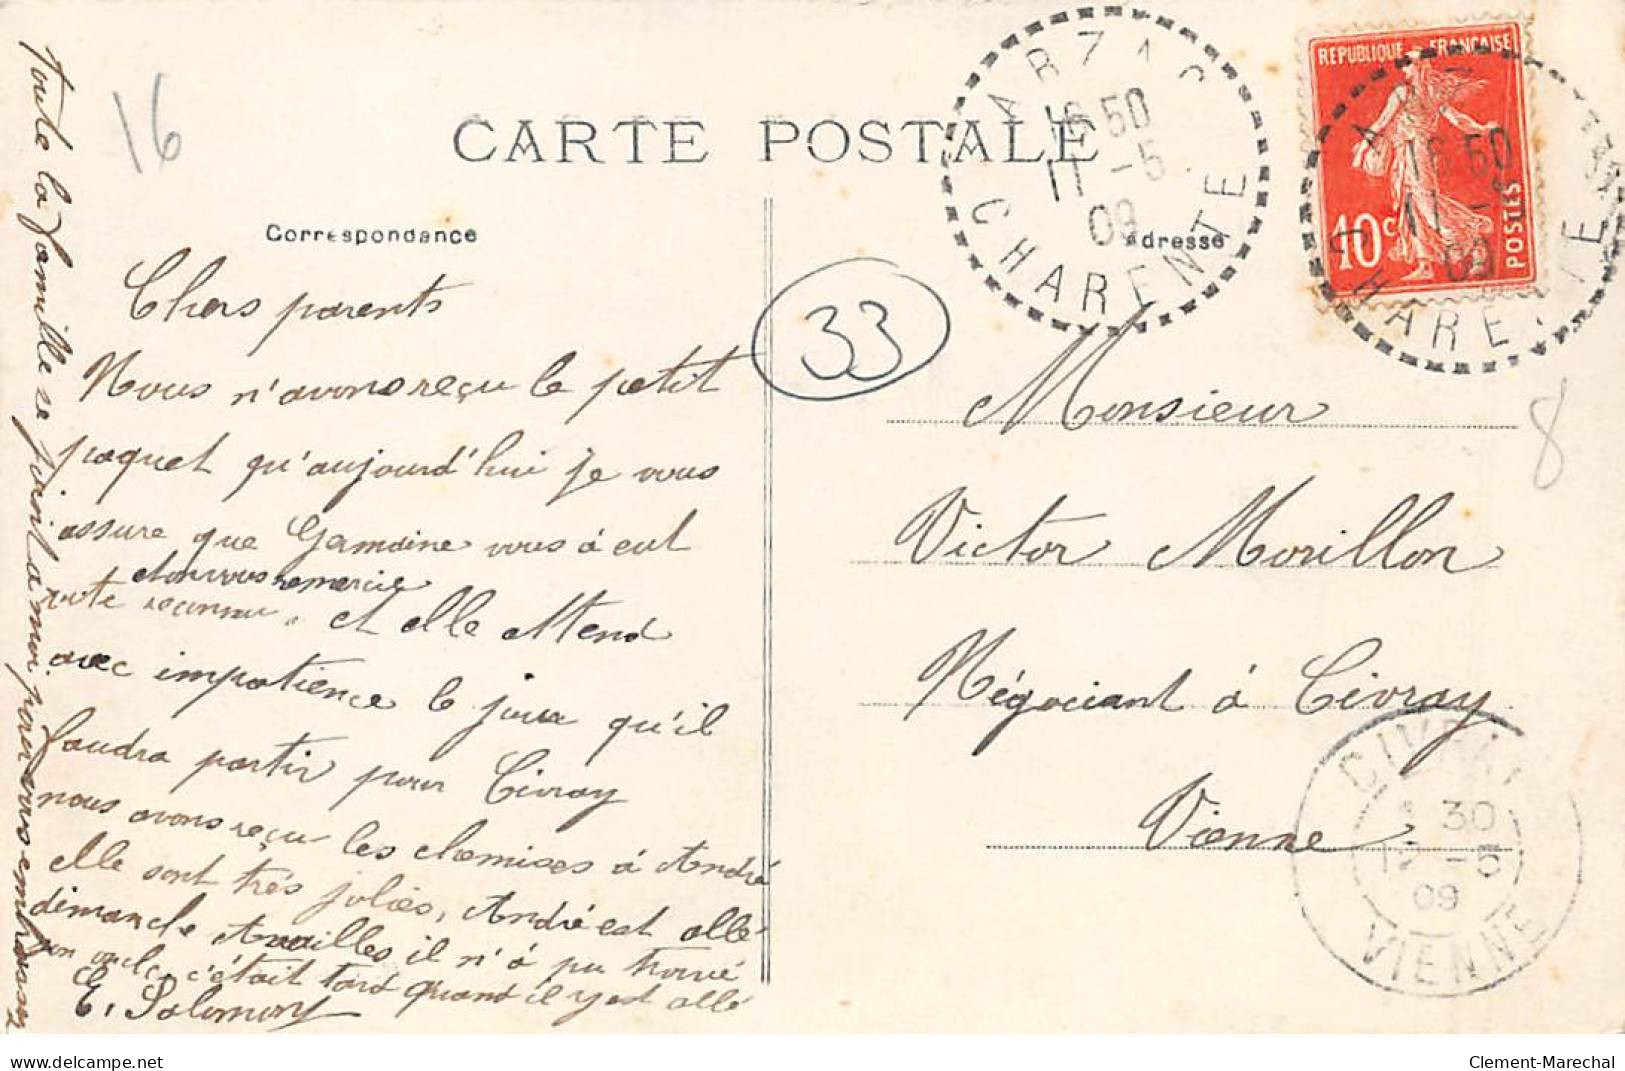 16
CARTE POSTALE
Correspondance
Adresse
ARZAC
16 50
11 -5
09
CHARENTE
REPUBLIQUE FRANÇAISE
10c
POSTES
16 50
11 -5
09
CHARENTE
33
8
Chers parents
Nous n'avons reçu le petit
paquet qu'aujourd'hui je vous
assure que Germaine vous à eut
et on vous remercie
vite reconnu. et elle attend
avec impatience le jour qu'il
faudra partir pour Civray
nous avons reçu les chemises à André
elle sont très jolies, André est allé
dimanche Availles il n'à pu trouvé
son oncle c'était tard quand il y est allé
E. Salomony
Toute la famille se joint a moi pour vous embrasser
Monsieur
Victor Morillon
Négociant à Civray
Vienne
CIVRAY
30
12 -5
09
VIENNE
www.delcampe.net
Clement-Marechal